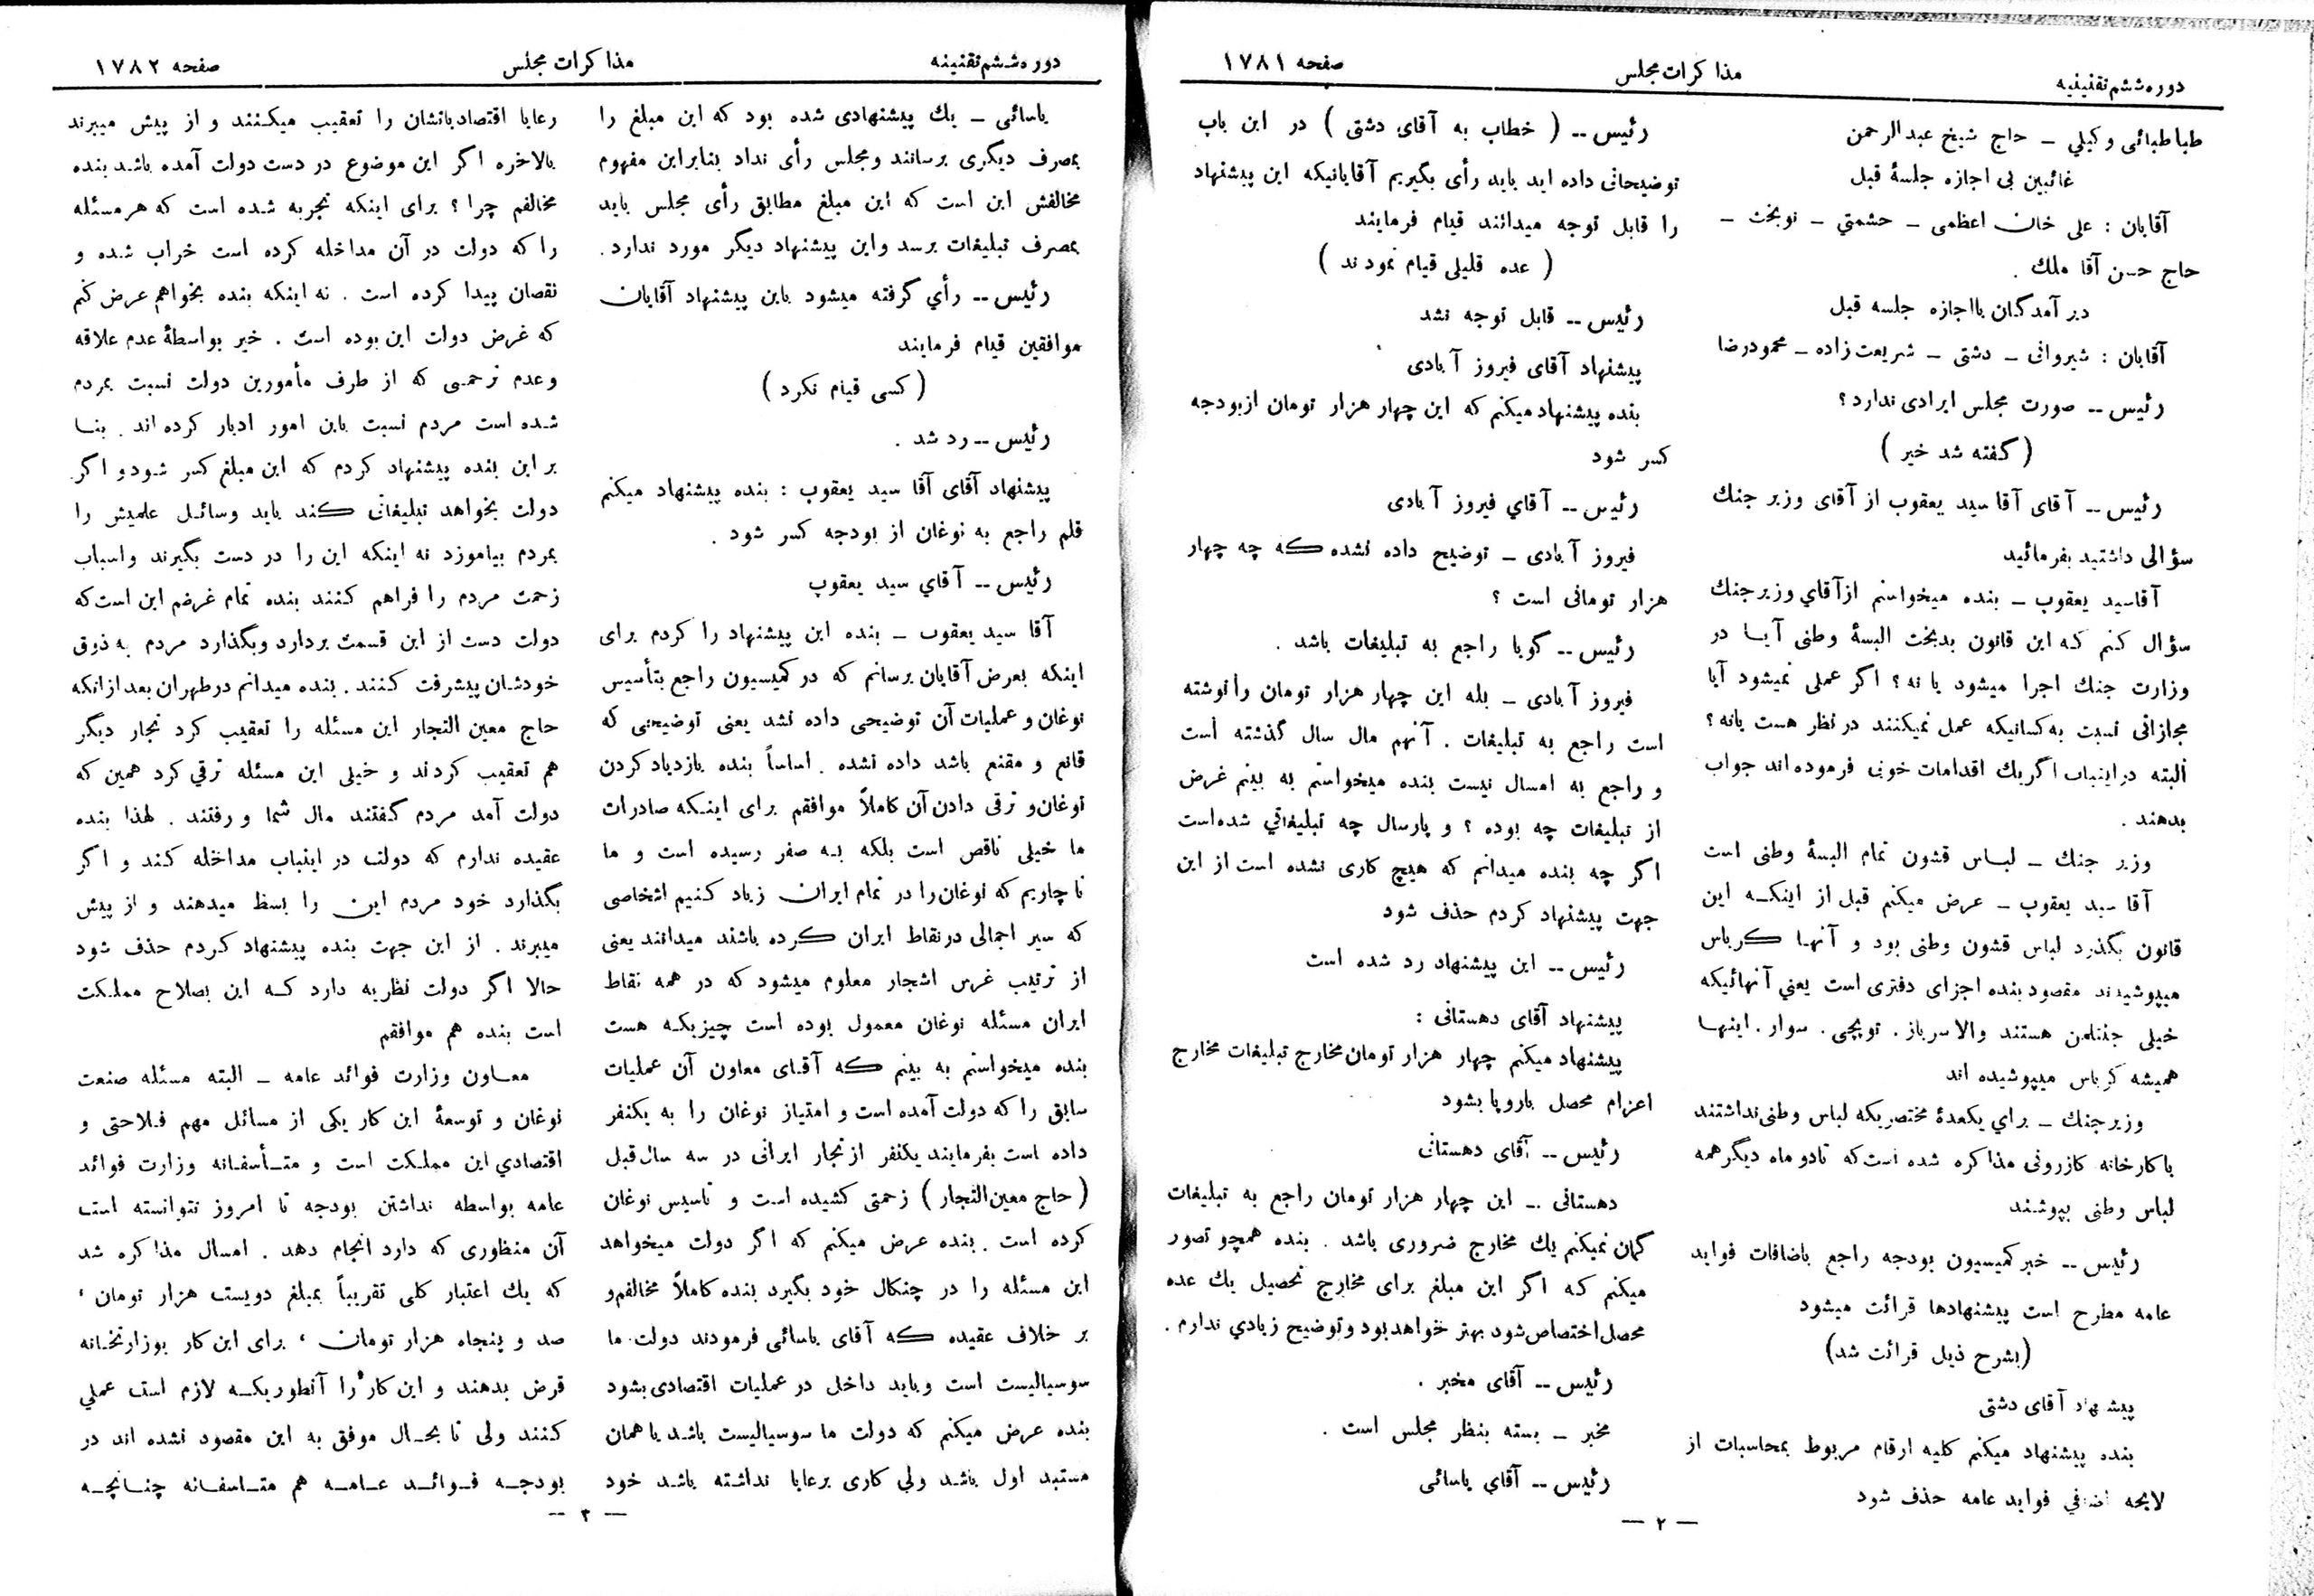 دوره ششم تقنینیه
مذاکرات مجلس
صفحه ۱۷۸۱
طباطبائی وکیلي ـ حاج شیخ عبدالرحمن
غائبین بی اجازه جلسهٔ قبل
آقایان : علی خان اعظمی ـ حشمتي ـ نوبخت ـ
حاج حسن آقا ملك .
دیر آمدگان بااجازه جلسه قبل
آقایان : شیروانی ـ دشتی ـ شریعت زاده ـ محمودرضا
رئیس ــ صورت مجلس ایرادی ندارد ؟
( گفته شد خیر )
رئیس ــ آقای آقا سید یعقوب از آقای وزیر جنك
سؤالی داشتید بفرمائید
آقاسید یعقوب ـ بنده میخواستم ازآقاي وزیر جنك
سؤال کنم که این قانون بدبخت البسهٔ وطنی آیـا در
وزارت جنك اجرا میشود یا نه ؟ اگر عملی نمیشود آیا
مجازاتی نسبت به کسانیکه عمل نمیکنند در نظر هست یانه ؟
البته در اینباب اگر یك اقدامات خوبی فرموده اند جواب
بدهند .
وزیر جنك ـ لبـاس قشون تمام البسهٔ وطنی است
آقا سید یعقوب ـ عرض میکنم قبل از اینکـه این
قانون بگذرد لباس قشون وطنی بود و آنهـا کرباس
میپوشیدند مقصود بنده اجزای دفتری است یعني آنهائیکه
خیلی جنتلمن هستند والا سرباز . توپچی . سوار . اینهـا
همیشه کرباس میپوشیده اند
وزیر جنك ـ براي یکعدهٔ مختصریکه لباس وطنی نداشتند
با کارخانه کازرونی مذاکره شده است که تادو ماه دیگر همه
لباس وطنی بپوشند
رئیس ــ خبر کمیسیون بودجه راجع باضافات فواید
عامه مطرح است پیشنهادها قرائت میشود
(بشرح ذیل قرائت شد)
پیشنهاد آقای دشتی
بنده پیشنهاد میکنم کلیه ارقام مربوط بمحاسبات از
لایحه اضافي فواید عامه حذف شود
رئیس ــ ( خطاب به آقای دشتی ) در این باب
توضیحاتی داده اید باید رأی بگیریم آقایانیکه این پیشنهاد
را قابل توجه میدانند قیام فرمایند
( عده قلیلی قیام نمودند )
رئیس ــ قابل توجه نشد
پیشنهاد آقای فیروز آبادی
بنده پیشنهاد میکنم که این چهار هزار تومان از بودجه
کسر شود
رئیس ــ آقاي فیروز آبادی
فیروز آبادی ـ توضیح داده نشده که چه چهار
هزار تومانی است ؟
رئیس ــ گویا راجع به تبلیغات باشد .
فیروز آبادی ـ بله این چهار هزار تومان را نوشته
است راجع به تبلیغات . آنهم مال سال گذشته است
و راجع به امسال نیست بنده میخواستم به بینم غرض
از تبلیغات چه بوده ؟ و پارسال چه تبلیغاتي شده‌است
اگر چه بنده میدانم که هیچ کاری نشده است از این
جهت پیشنهاد کردم حذف شود
رئیس ــ این پیشنهاد رد شده است
پیشنهاد آقای دهستانی :
پیشنهاد میکنم چهار هزار تومان مخارج تبلیغات مخارج
اعزام محصل باروپا بشود
رئیس ــ آقای دهستانی
دهستانی ـ این چهار هزار تومان راجع به تبلیغات
گمان نمیکنم یك مخارج ضروری باشد . بنده همچو تصور
میکنم که اگر این مبلغ برای مخارج تحصیل یك عده
محصل اختصاص شود بهتر خواهد بود و توضیح زیادي ندارم .
رئیس ــ آقای مخبر .
مخبر ـ بسته بنظر مجلس است .
رئیس ــ آقاي یاسائی
— ۲ —
دوره ششم تقنینیه
مذاکرات مجلس
صفحه ۱۷۸۲
یاسائی ـ یك پیشنهادی شده بود که این مبلغ را
بمصرف دیگری برسانند ومجلس رأی نداد بنابراین مفهوم
مخالفش این است که این مبلغ مطابق رأی مجلس باید
بمصرف تبلیغات برسد واین پیشنهاد دیگر مورد ندارد .
رئیس ــ رأي گرفته میشود باین پیشنهاد آقایان
موافقین قیام فرمایند
( کسی قیام نکرد )
رئیس ــ رد شد .
پیشنهاد آقای آقا سید یعقوب : بنده پیشنهاد میکنم
قلم راجع به نوغان از بودجه کسر شود .
رئیس ــ آقاي سید یعقوب
آقا سید یعقوب ـ بنده این پیشنهاد را کردم برای
اینکه بعرض آقایان برسانم که در کمیسیون راجع بتأسیس
نوغان و عملیات آن توضیحی داده نشد یعنی توضیحی که
قانع و مقنع باشد داده نشده . اساساً بنده بازدیاد کردن
نوغان و ترقی دادن آن کاملاً موافقم برای اینـکه صادرات
ما خیلی ناقص است بلکه بـه صفر رسیده است و ما
ناچاریم که نوغان را در تمام ایران زیاد کنیم اشخاصی
که سیر اجمالی در نقاط ایران کرده باشند میدانند یعنی
از ترتیب غرس اشجار معلوم میشود که در همه نقاط
ایران مسئله نوغان معمول بوده است چیزیکـه هست
بنده میخواستم به بینم که آقـای معاون آن عملیات
سابق را که دولت آمده است و امتیاز نوغان را به یکنفر
داده است بفرمایند یکنفر از تجار ایرانی در سه سال قبل
( حاج معین‌التجار ) زحمتی کشیده است و تاسیس نوغان
کرده است . بنده عرض میکنم که اگر دولت میخواهد
این مسئله را در چنکال خود بگیرد بنده کاملاً مخالفم و
بر خلاف عقیده که آقای یاسائی فرمودند دولت ما
سوسیالیست است وباید داخل در عملیات اقتصادی بشود
بنده عرض میکنم که دولت ما سوسیالیست باشد یا همان
مستبد اول باشد ولي کاری برعایا نداشته باشد خود
رعایا اقتصادیاتشان را تعقیب میکنند و از پیش میبرند
بالاخره اگر این موضوع در دست دولت آمده باشد بنده
مخالفم چرا ؟ برای اینکه تجربه شده است که هر مسئله
را که دولت در آن مداخله کرده است خراب شده و
نقصان پیدا کرده است . نه اینکه بنده بخواهم عرض کنم
که غرض دولت این بوده است . خیر بواسطهٔ عدم علاقه
وعدم ترحمی که از طرف مأمورین دولت نسبت بمردم
شده است مردم نسبت باین امور ادبار کرده اند . بنـا
بر این بنده پیشنهاد کردم که این مبلغ کسر شود و اگر
دولت بخواهد تبلیغاتی کند باید وسائل علمیش را
بمردم بیاموزد نه اینکه این را در دست بگیرند واسباب
زحمت مردم را فراهم کنند بنده تمام غرضم این است که
دولت دست از این قسمت بردارد وبگذارد مردم به ذوق
خودشان پیشرفت کنند . بنده میدانم در طهران بعد از آنکه
حاج معین التجار این مسئله را تعقیب کرد تجار دیگر
هم تعقیب کردند و خیلی این مسئله ترقي کرد همین که
دولت آمد مردم گفتند مال شما و رفتند . لهذا بنده
عقیده ندارم که دولت در اینباب مداخله کند و اگر
بگذارد خود مردم این را بسط میدهند و از پیش
میبرند . از این جهت بنده پیشنهاد کردم حذف شود
حالا اگر دولت نظریه دارد کـه این بصلاح مملکت
است بنده هم موافقم
معـاون وزارت فوائد عامه ـ البته مسئله صنعت
نوغان و توسعهٔ این کار یکی از مسائل مهم فـلاحتی و
اقتصادي این مملکت است و متـأسفـانه وزارت فوائد
عامه بواسطه نداشتن بودجه تا امروز نتوانسته است
آن منظوری که دارد انجام دهد . امسال مذاکره شد
که یك اعتبار کلی تقریباً بمبلغ دویست هزار تومان ،
صد و پنجاه هزار تومان ، برای این کار بوزارتخـانه
قرض بدهند و این کار را آنطوریکـه لازم است عملي
کنند ولی تا بحـال موفق به این مقصود نشده اند در
بودجـه فـوائـد عـامـه هم متـاسفـانه چنـانچـه
— ۳ —